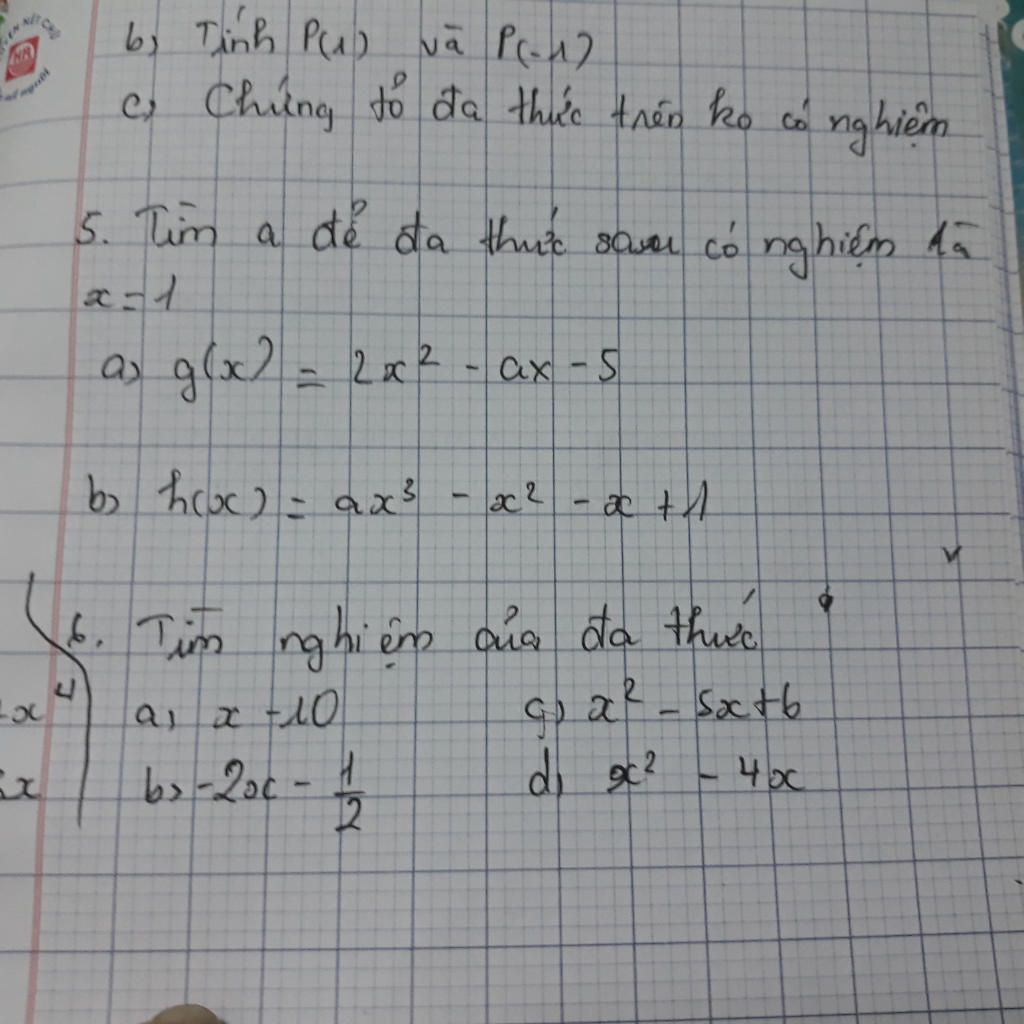 b) Tính P(1) và P(-1)
c) Chứng tỏ đa thức trên ko có nghiệm
5. Tìm a để đa thức sau có nghiệm là
x = 1
a) g(x) = 2x² - ax - 5
b) h(x) = ax³ - x² - x + 1
6. Tìm nghiệm của đa thức
a) x - 10 c) x² - 5x + 6
b) -2x - 1/2 d) x² - 4x
x⁴
x